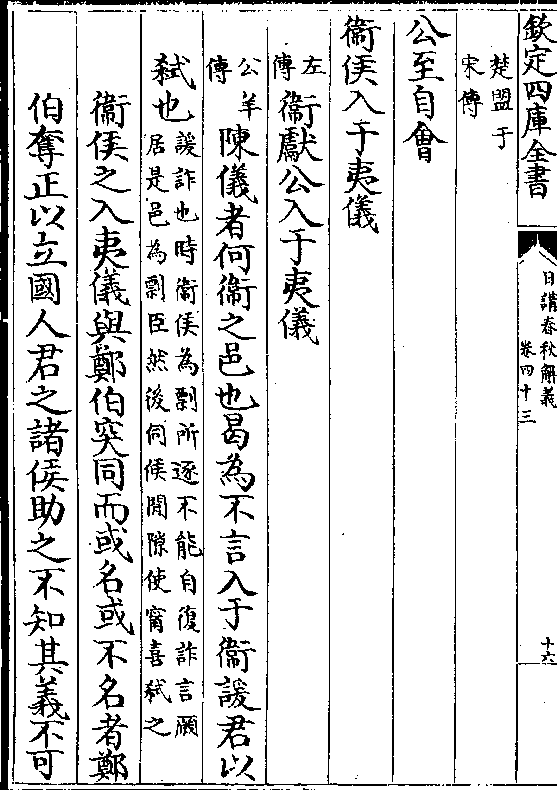 欽定四庫全書
日講春秋解義
卷四十三
十六
楚盟于
宋傳
公至自會
衞侯入于夷儀
左傳
衞獻公入于夷儀
公羊傳
陳儀者何衞之邑也曷為不言入于衞諼君以
弑也
諼詐也時衞侯為剽所逐不能自復詐言願
居是邑為剽臣然後伺候間隙使甯喜弑之
衞侯之入夷儀與鄭伯突同而或名或不名者鄭
伯奪正以立國人君之諸侯助之不知其義不可